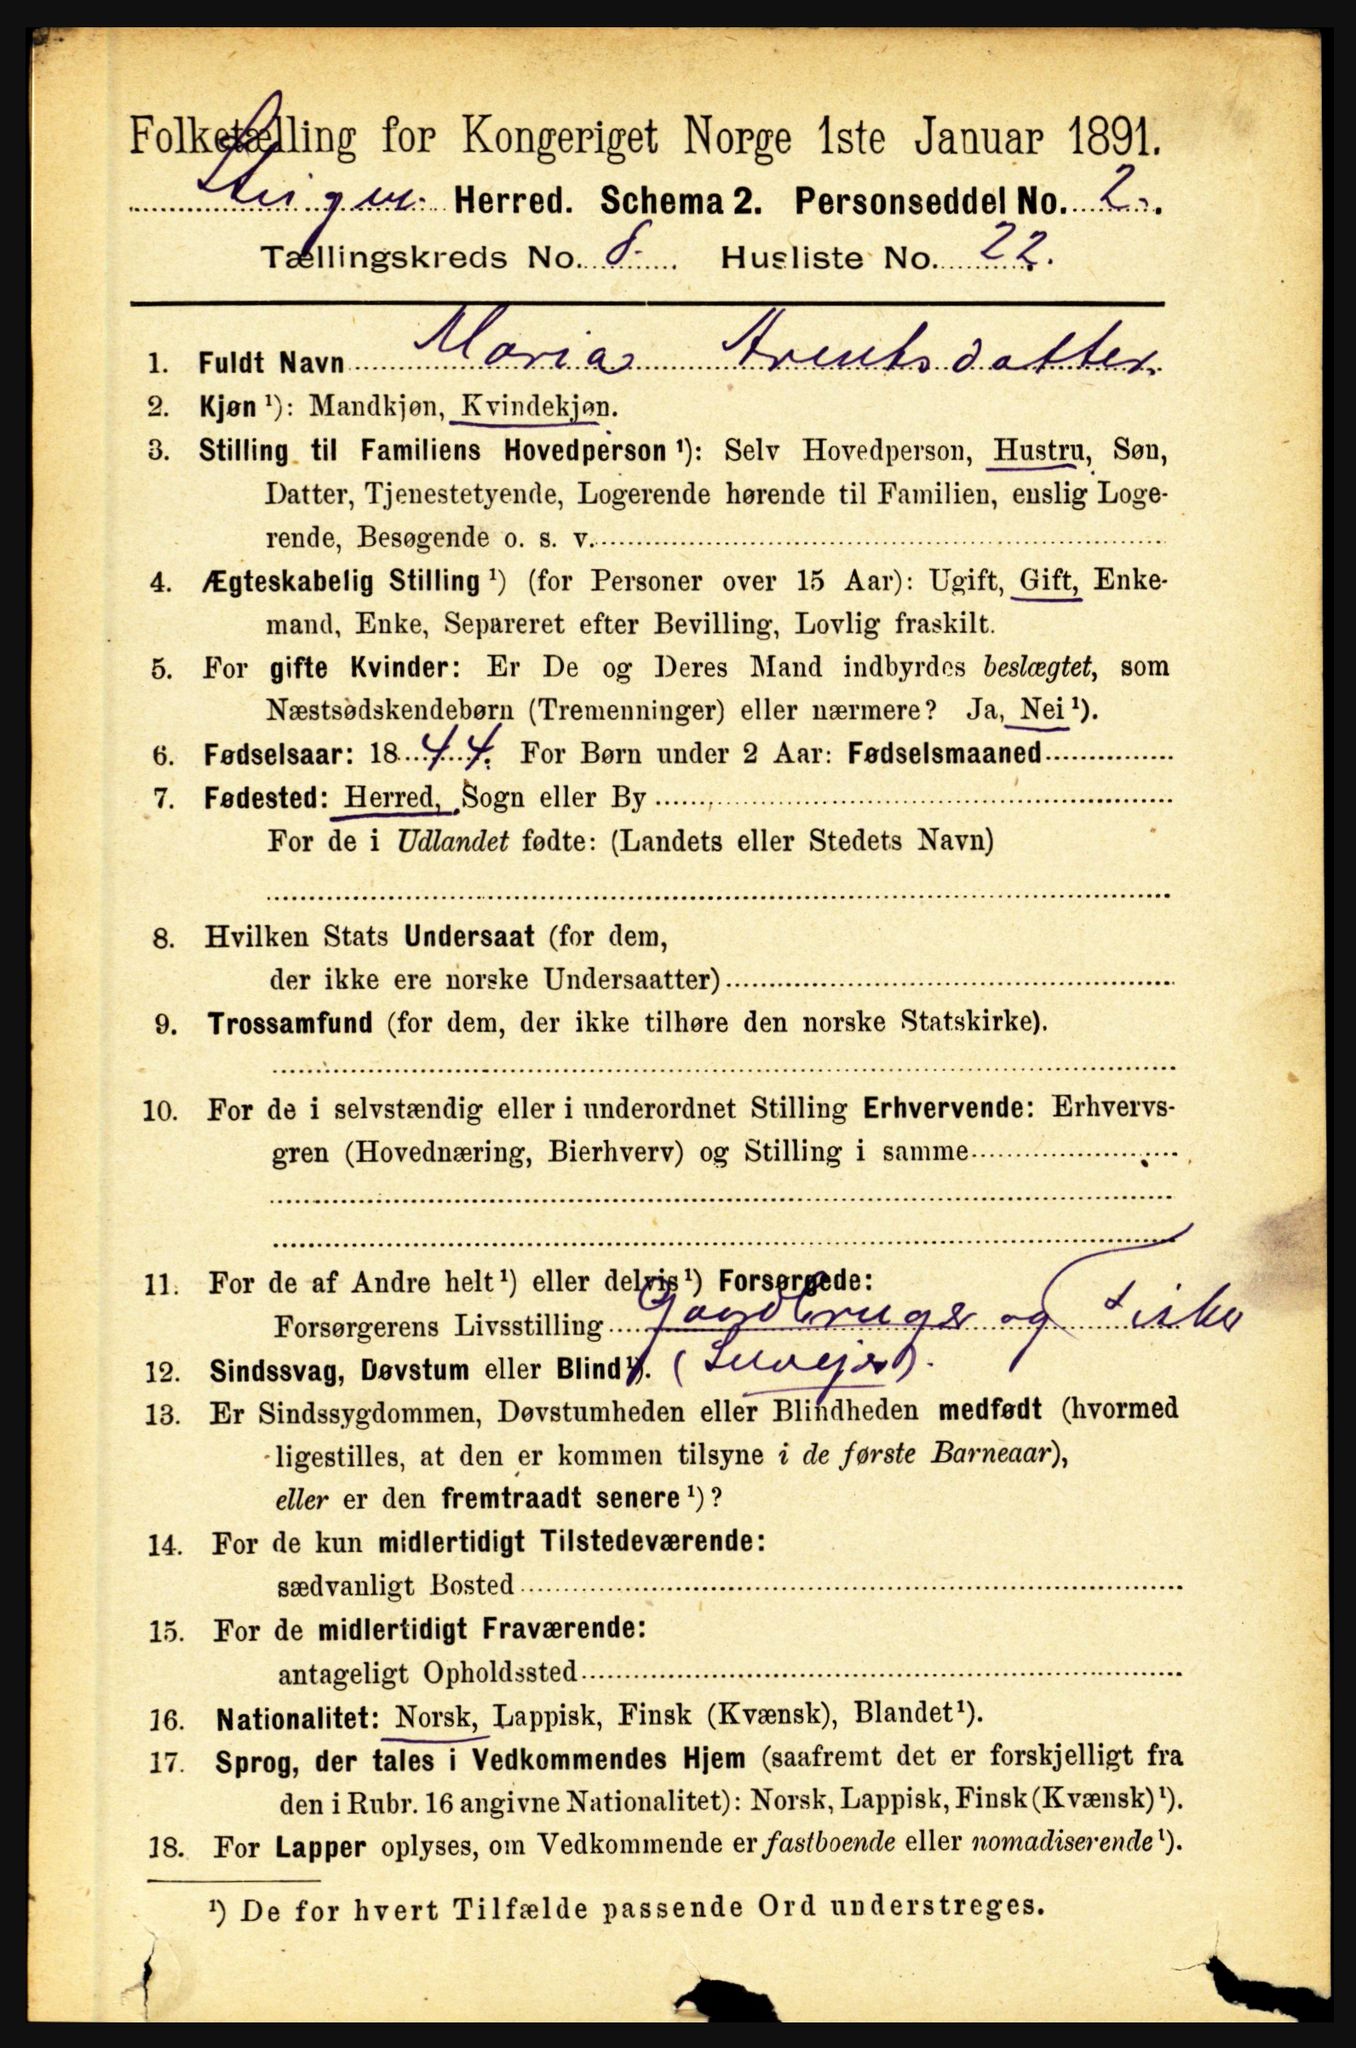 Folketælling for Kongeriget Norge 1ste Januar 1891.
Steigen Herred. Schema 2. Personseddel No. 2.
Tællingskreds No. 8. Husliste No. 22.
1. Fuldt Navn Maria Arentsdatter.
2. Kjøn ¹): Mandkjøn, Kvindekjøn.
3. Stilling til Familiens Hovedperson ¹): Selv Hovedperson, Hustru, Søn,
Datter, Tjenestetyende, Logerende hørende til Familien, enslig Loge-
rende, Besøgende o. s. v.
4. Ægteskabelig Stilling ¹) (for Personer over 15 Aar): Ugift, Gift, Enke-
mand, Enke, Separeret efter Bevilling, Lovlig fraskilt.
5. For gifte Kvinder: Er De og Deres Mand indbyrdes beslægtet, som
Næstsødskendebørn (Tremenninger) eller nærmere? Ja, Nei ¹).
6. Fødselsaar: 1844. For Børn under 2 Aar: Fødselsmaaned
7. Fødested: Herred, Sogn eller By
For de i Udlandet fødte: (Landets eller Stedets Navn)
8. Hvilken Stats Undersaat (for dem,
der ikke ere norske Undersaatter)
9. Trossamfund (for dem, der ikke tilhøre den norske Statskirke).
10. For de i selvstændig eller i underordnet Stilling Erhvervende: Erhvervs-
gren (Hovednæring, Bierhverv) og Stilling i samme
11. For de af Andre helt ¹) eller delvis ¹) Forsørgede:
Forsørgerens Livsstilling Gaardbruger og Fisker
12. Sindssvag, Døvstum eller Blind ¹). (Selvejer).
13. Er Sindssygdommen, Døvstumheden eller Blindheden medfødt (hvormed
ligestilles, at den er kommen tilsyne i de første Barneaar),
eller er den fremtraadt senere ¹)?
14. For de kun midlertidigt Tilstedeværende:
sædvanligt Bosted
15. For de midlertidigt Fraværende:
antageligt Opholdssted
16. Nationalitet: Norsk, Lappisk, Finsk (Kvænsk), Blandet ¹).
17. Sprog, der tales i Vedkommendes Hjem (saafremt det er forskjelligt fra
den i Rubr. 16 angivne Nationalitet): Norsk, Lappisk, Finsk (Kvænsk) ¹).
18. For Lapper oplyses, om Vedkommende er fastboende eller nomadiserende ¹).
¹) De for hvert Tilfælde passende Ord understreges.